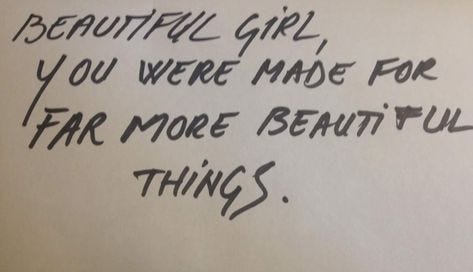 BEAUTIFUL GIRL,
YOU WERE MADE FOR
FAR MORE BEAUTIFUL
THINGS.